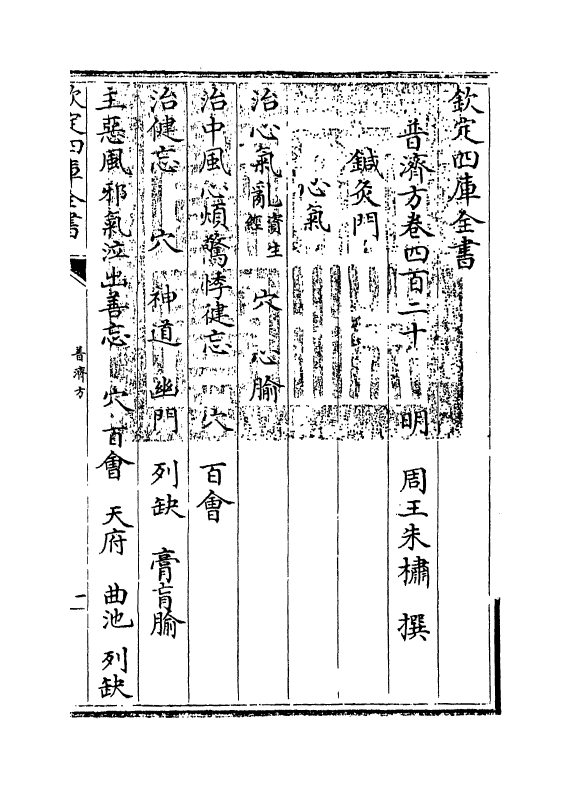 欽定四庫全書
普濟方卷四百二十 明 周王朱橚 撰
鍼灸門
心氣
治心氣亂資生經 穴 心腧
治中風心煩驚悸健忘 穴 百會
治健忘 穴 神道 幽門 列缺 膏肓腧
主惡風邪氣泣出善忘 穴 百會 天府 曲池 列缺
欽定四庫全書
普濟方
一